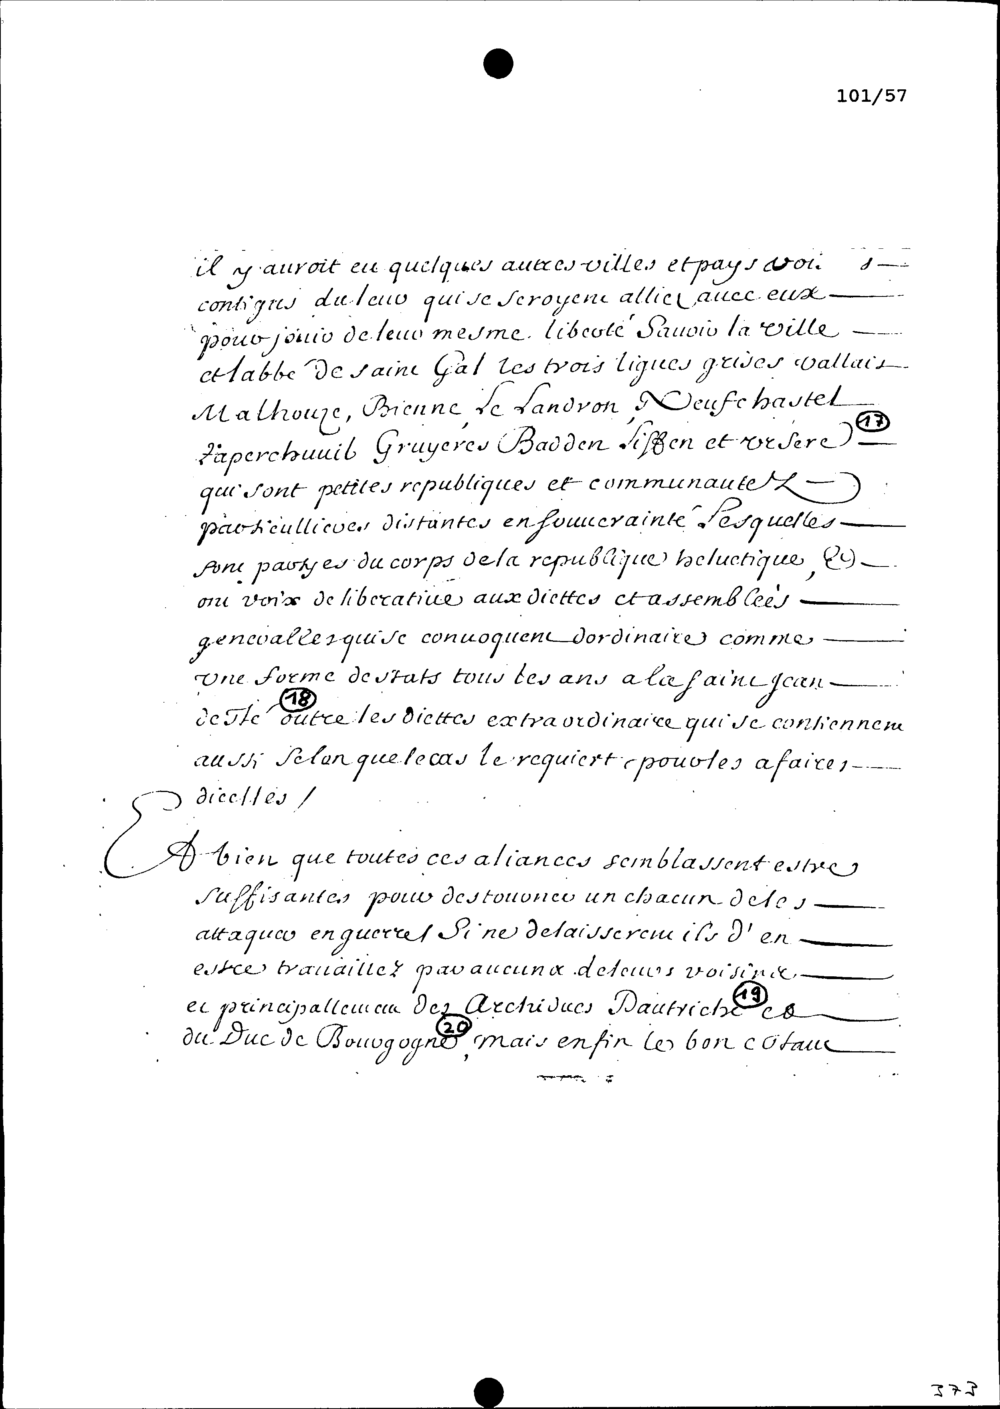 101/57
il y auroit eu quelques autres villes et pays voi s
contigus du leur qui se seroyent alliez avec eux
pour jouir de leur mesme liberté Sauoir la ville
et labbe De saint Gal les trois ligues grises vallais
Malhouze, Bienne, Le Landron, Neufchastel
Raperchuuil Gruyeres Badden Siffen et vesere (17)
qui sont petites republiques et communautez
particullieres distantes en souueraineté Lesquelles
sont partyes du corps de la republique heluetique, Et
ont voix deliberatiue aux diettes et assemblées
generalles qui se conuoquent dordinaire comme
vne forme destats tous les ans a la saint Jean
deste (18) outre les diettes extraordinaire qui se contiennent
aussi Selon que le cas le requiert pour les afaires
dicelles /
Et bien que toutes ces aliances semblassent estre
suffisantes pour destourner un chacun de les
attaquer en guerre / Si ne delaisserent ils d'en
estre trauaillez par aucuns de leurs voisins
et principallement des Archiducs Dautriche (19) et
du Duc de Bourgogne (20), mais enfin les bon
373